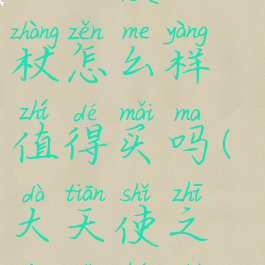 zhàng zěn me yàng
杖怎么样
zhí dé mǎi ma
值得买吗(
dà tiān shǐ zhī
大天使之